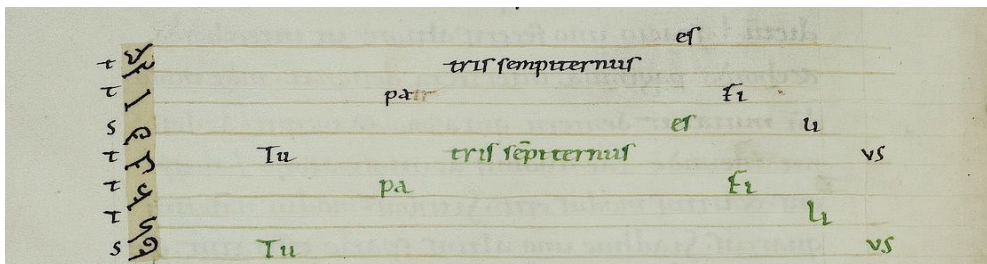 eſ
t triſ ſempiternuſ
t pa Fi
s eſ li
t Tu triſ ſēpiternuſ vs
t pa Fi
t li
s Tu vs